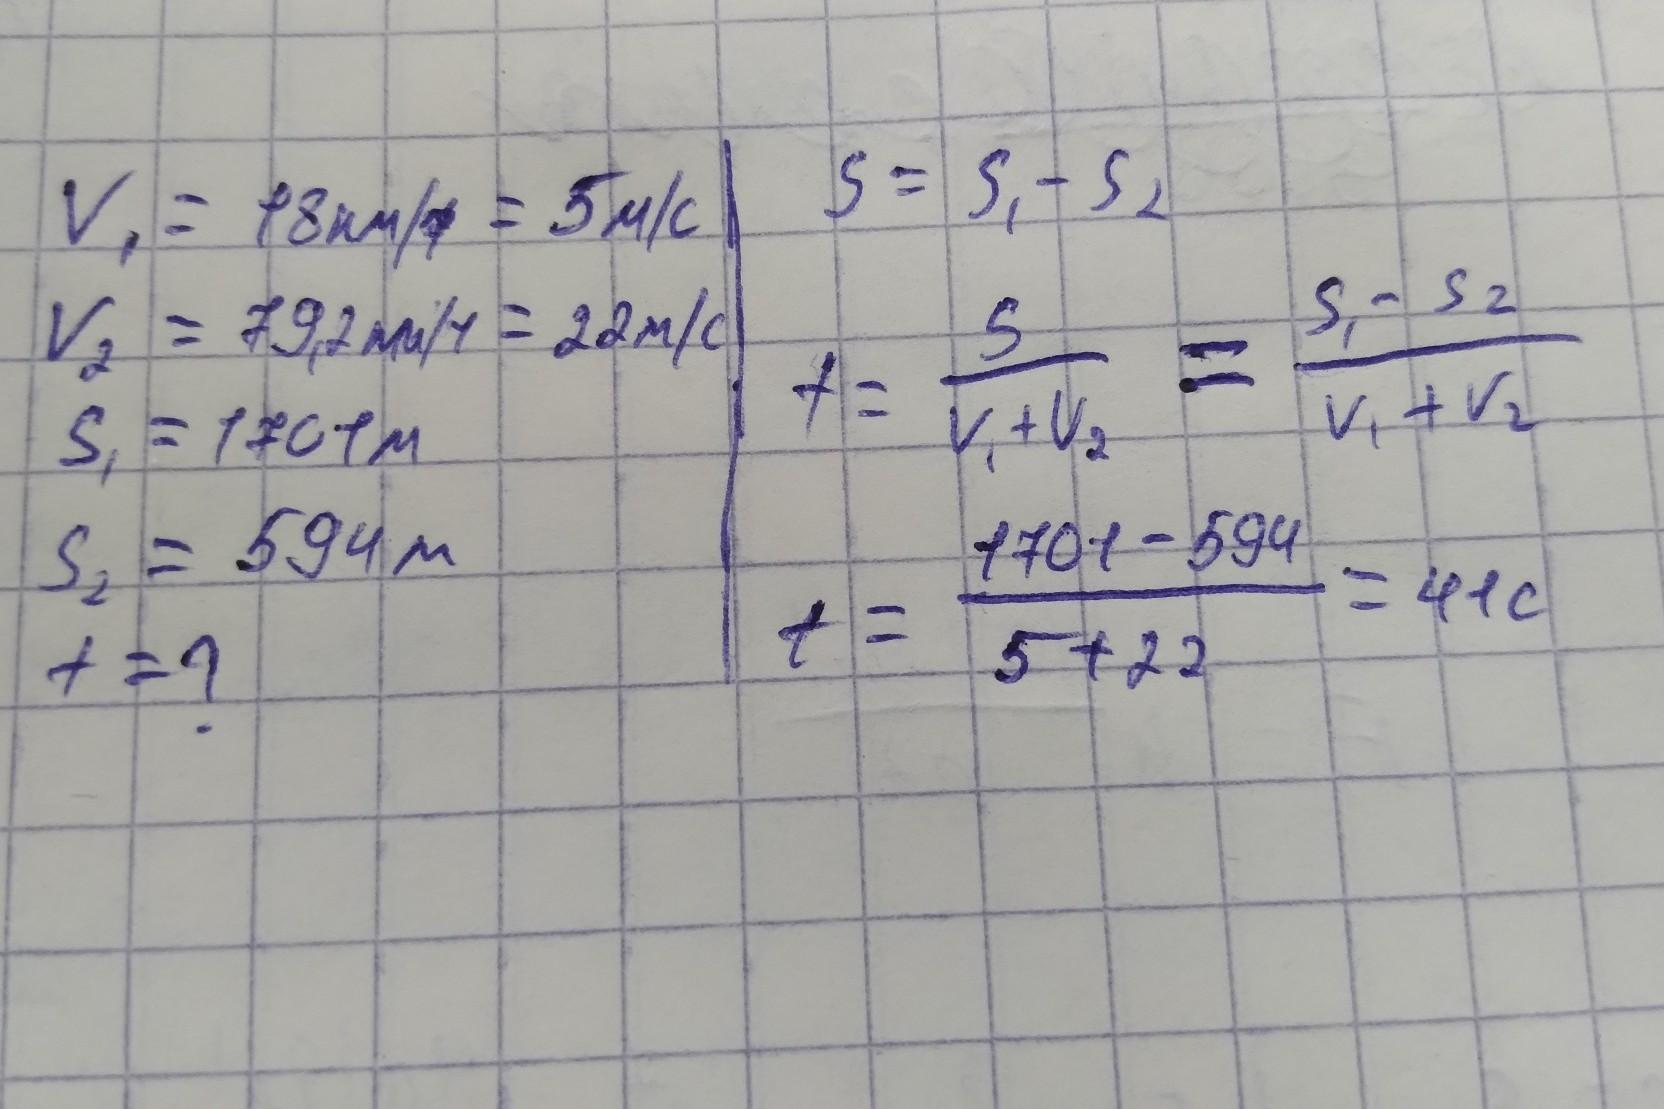 V₁ = 18км/ч = 5м/с
V₂ = 79,2км/ч = 22м/с
S₁ = 1701м
S₂ = 594м
t = ?
S = S₁ - S₂
t = S / (V₁ + V₂) = (S₁ - S₂) / (V₁ + V₂)
t = (1701 - 594) / (5 + 22) = 41с